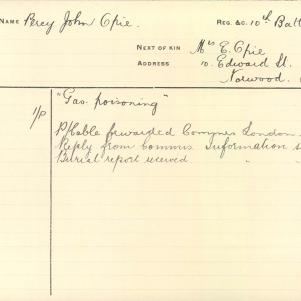 NAME Percy John Opie. REG. &C. 10th Batt
NEXT OF KIN Mrs E. Opie
ADDRESS 10. Edward St.
Norwood.
"Gas poisoning"
1/P P/Cable forwarded London
Reply from Commrs. Information
Burial report received "